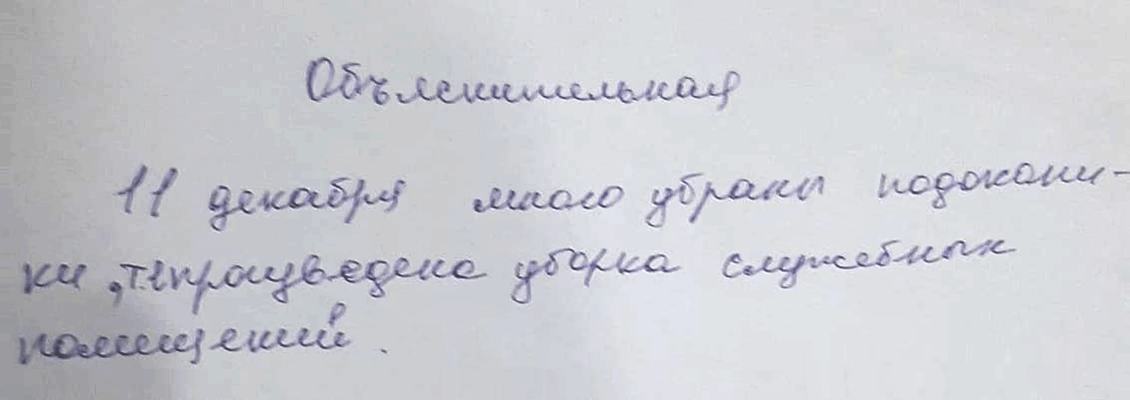 Объяснительная
11 декабря мною убраны подоконни-
ки, т.е. произведена уборка служебных
помещений.